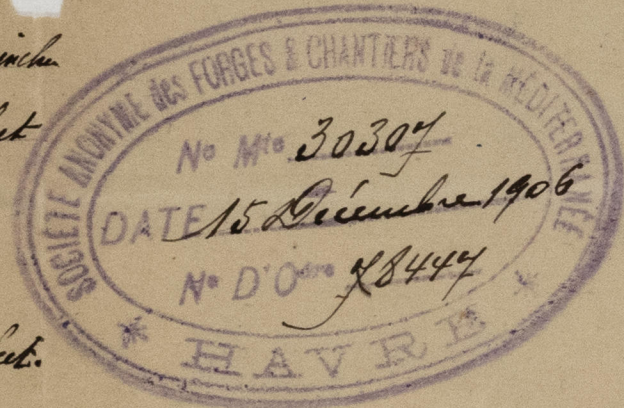 SOCIÉTÉ ANONYME des FORGES & CHANTIERS de la MÉDITERRANÉE
No Mle 30307
DATE 15 Décembre 1906
No D'Odre 78447
* HAVRE *